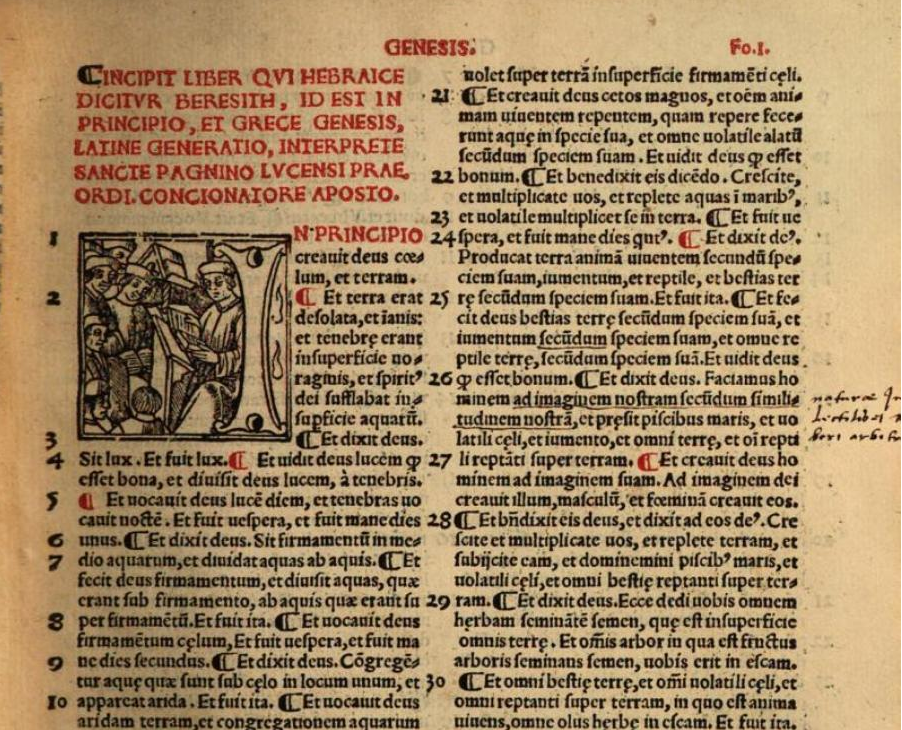 GENESIS.
Fo.I.
¶INCIPIT LIBER QVI HEBRAICE
DICITVR BERESITH, ID EST IN
PRINCIPIO, ET GRECE GENESIS,
LATINE GENERATIO, INTERPRETE
SANCTE PAGNINO LVCENSI PRAE,
ORDI. CONCIONATORE APOSTO.
1 IN PRINCIPIO
creauit deus cœ⸗
lum, et terram.
2 ¶ Et terra erat
desolata, et īanis:
et tenebrę erant
insuperficie uo⸗
raginis, et spiritꝰ
dei sufflabat in⸗
supficie aquarū.
3 ¶Et dixit deus.
4 Sit lux. Et fuit lux.¶ Et uidit deus lucem ꝙ
esset bona, et diuisit deus lucem, à tenebris.
5 ¶ Et uocauit deus lucē diem, et tenebras uo
cauit noctē. Et fuit uespera, et fuit mane dies
6 unus.¶Et dixit deus. Sit firmamentū in me⸗
7 dio aquarum, et diuidat aquas ab aquis.¶Et
fecit deus firmamentum, et diuisit aquas, quæ
erant sub firmamento, ab aquis quæ erant su
8 per firmamētū. Et fuit ita. ¶Et uocauit deus
firmamētum cęlum, Et fuit uespera, et fuit ma
9 ne dies secundus.¶Et dixit deus. Cōgregē⸗
tur aquę quæ sunt sub cęlo in locum unum, et
10 appareat arida. Et fuit ita. ¶Et uocauit deus
aridam terram, et congregationem aquarum
uolet super terrā insuperficie firmamēti cęli.
21 ¶Et creauit deus cetos magnos, et oēm ani⸗
mam uiuentem repentem, quam repere fece⸗
runt aquę in specie sua, et omne uolatile alatū
secūdum speciem suam. Et uidit deus ꝙ esset
22 bonum.¶Et benedixit eis dicēdo. Crescite,
et multiplicate uos, et replete aquas ī maribꝰ,
23 et uolatile multiplicet se in terra. ¶Et fuit ue
24 spera, et fuit mane dies qutꝰ. ¶ Et dixit deꝰ.
Producat terra animā uiuentem secundū spe⸗
ciem suam, iumentum, et reptile, et bestias ter
25 rę secūdum speciem suam. Et fuit ita. ¶Et fe⸗
cit deus bestias terrę secūdum speciem suā, et
iumentum secūdum speciem suam, et omne re
ptile terrę, secūdum speciem suā. Et uidit deus
26 ꝙ esset bonum.¶Et dixit deus. Faciamus ho
minem ad imaginem nostram secūdum simili⸗
tudinem nostrā, et pręsit piscibus maris, et uo
latili cęli, et iumento, et omni terrę, et oī repti
27 li reptāti super terram. ¶Et creauit deus ho
minem ad imaginem suam. Ad imaginem dei
creauit illum, masculū, et fœminā creauit eos.
28 ¶Et bñdixit eis deus, et dixit ad eos deꝰ. Cre
scite et multiplicate uos, et replete terram, et
subijcite eam, et dominemini piscibꝰ maris, et
uolatili cęli, et omni bestię reptanti super ter⸗
29 ram.¶Et dixit deus. Ecce dedi uobis omnem
herbam seminātē semen, quę est insuperficie
omnis terrę. Et om̄is arbor in qua est fructus
arboris seminans semen, uobis erit in escam.
30 ¶Et omni bestię terrę, et om̄i uolatili cęli, et
omni reptanti super terram, in quo est anima
uiuens, omne olus herbę in escam. Et fuit ita.